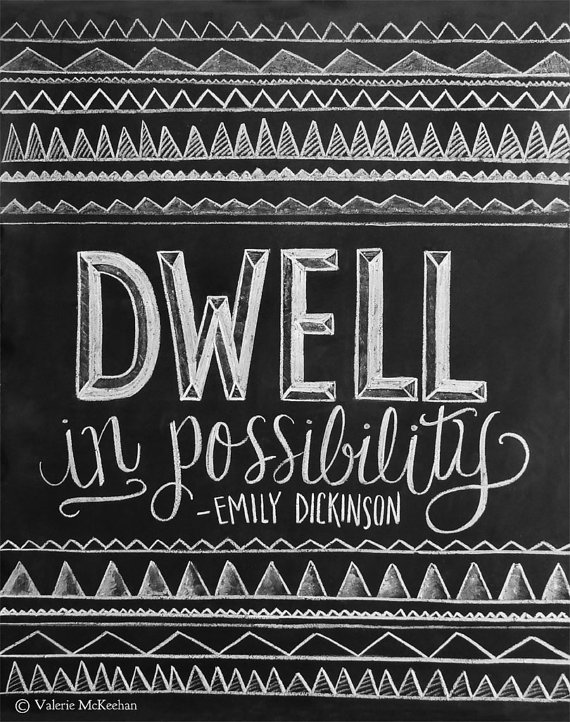 DWELL
in possibility
-EMILY DICKINSON
© Valerie McKeehan